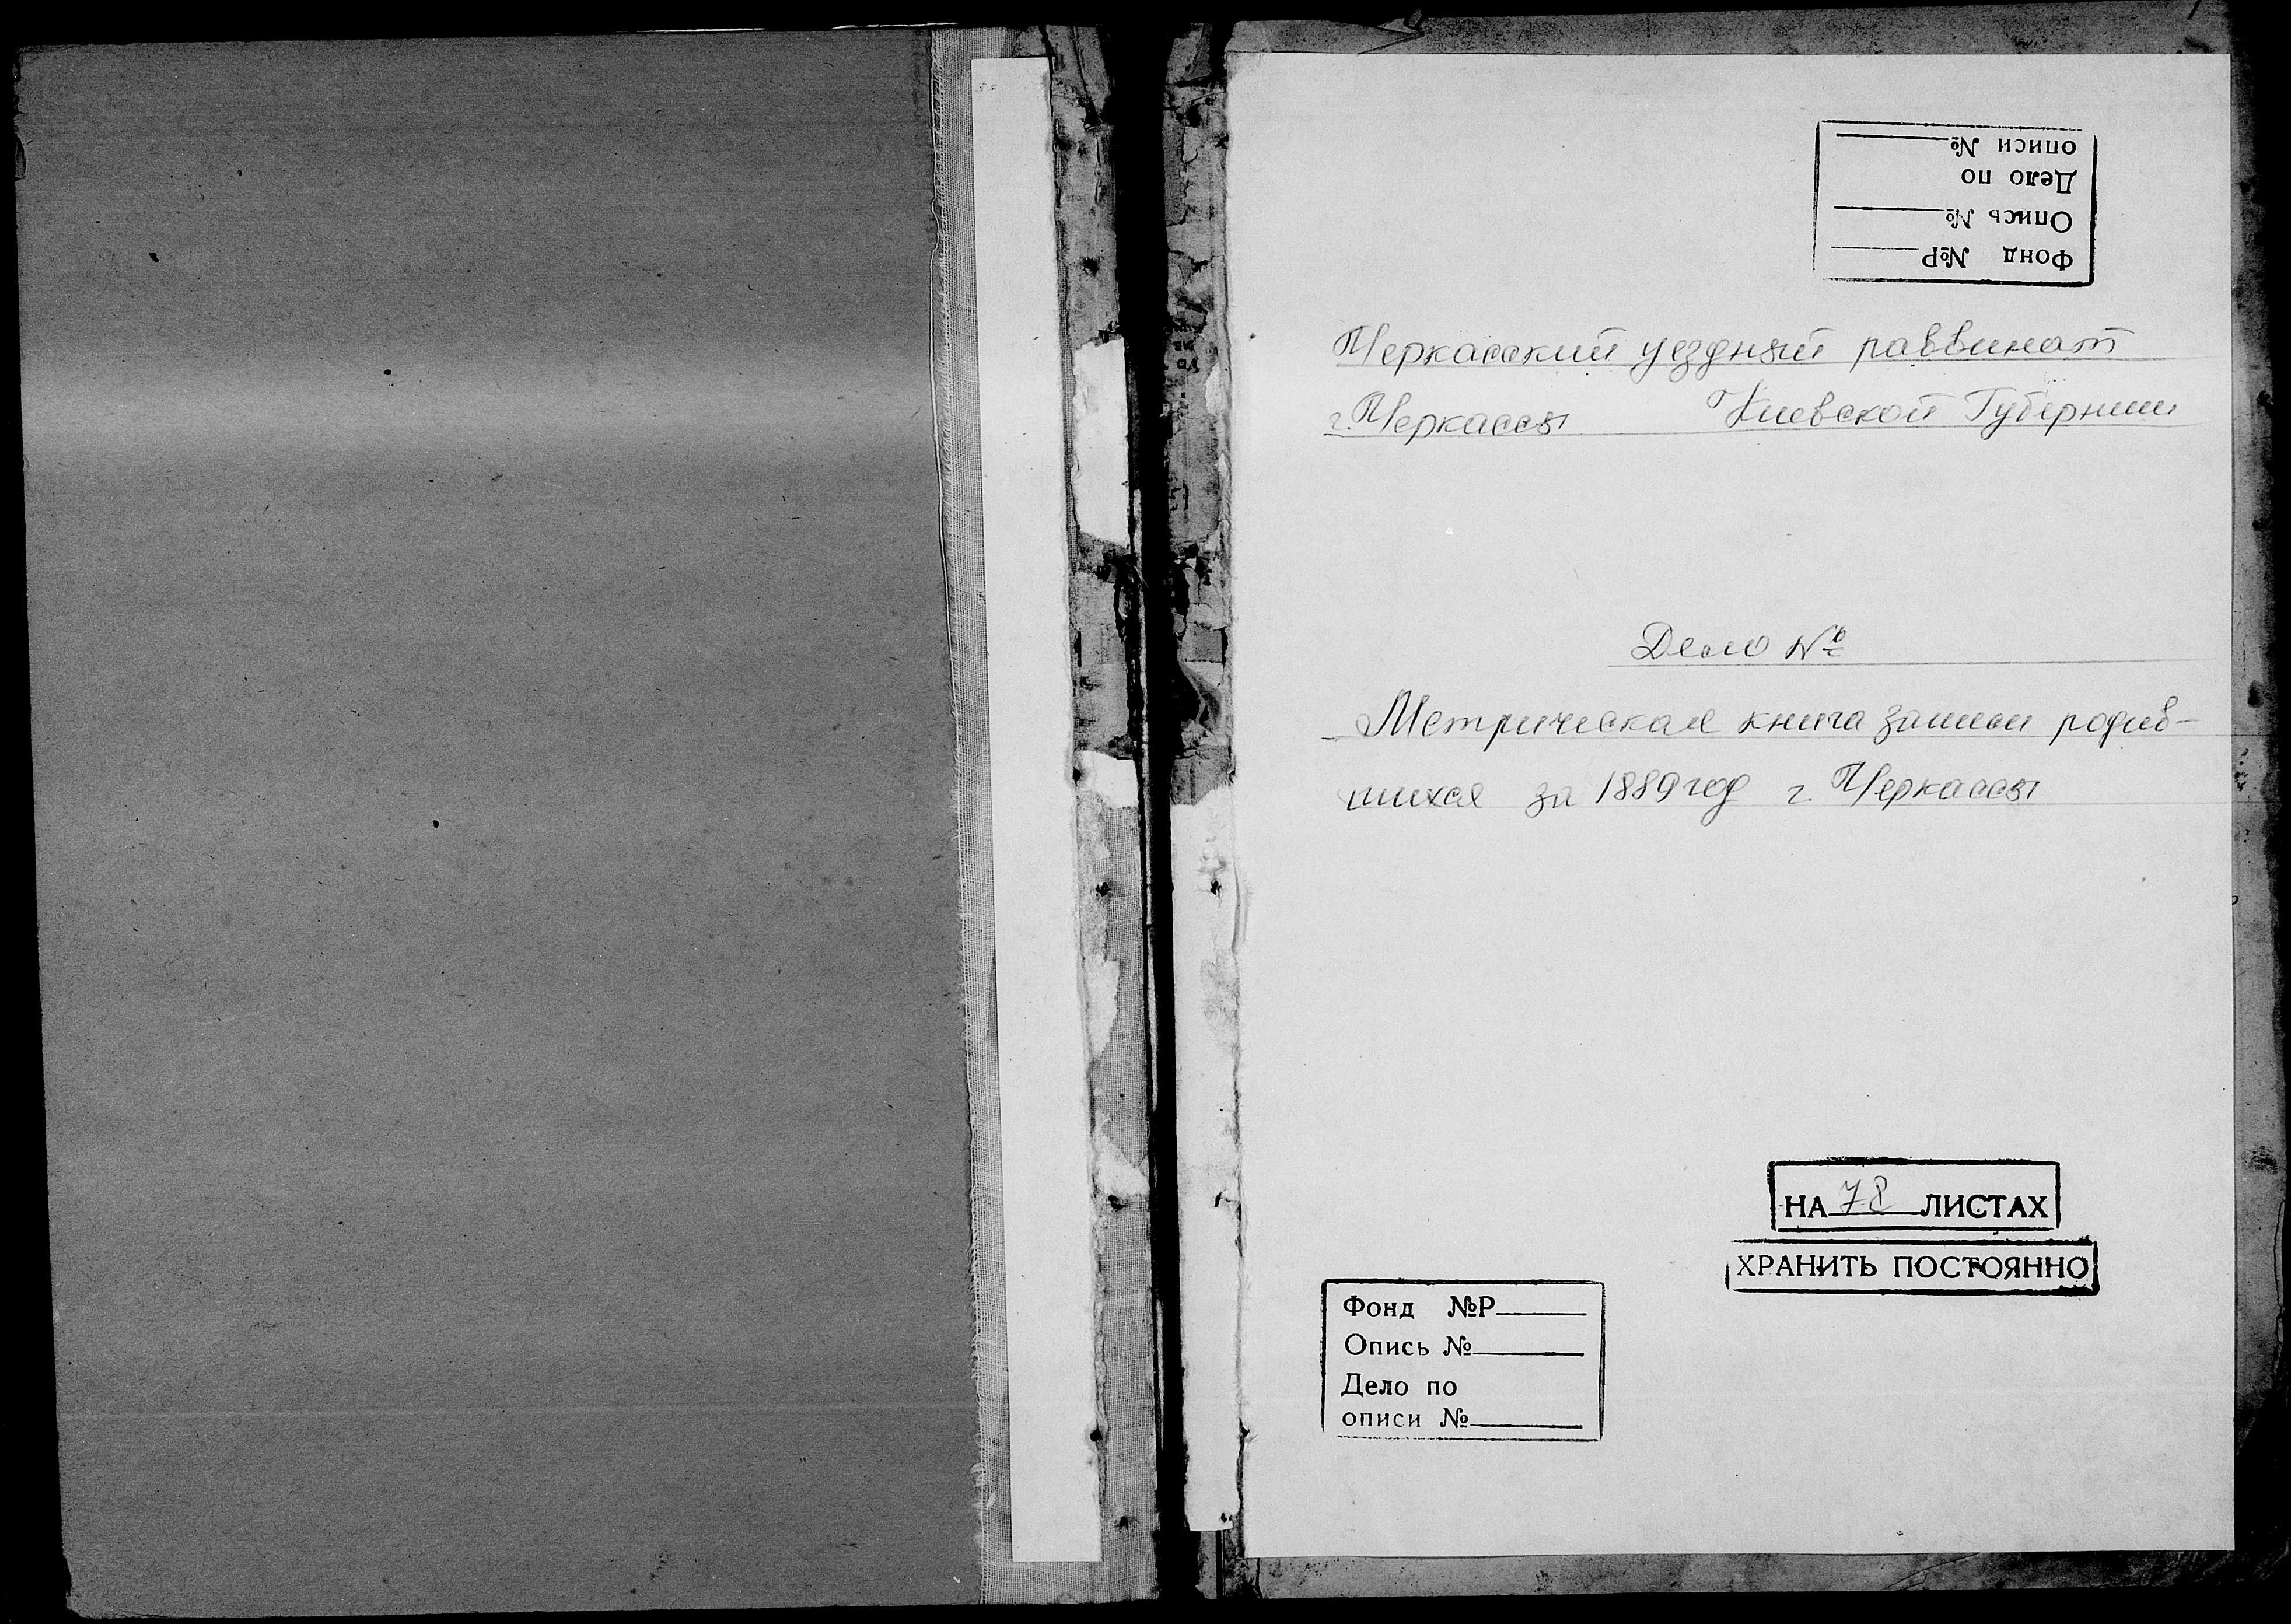 Фонд №Р
Опись №
Дело по
описи №
Черкасский уездный раввинат
г. Черкассы Киевской Губернии
Дело №
Метрическая книга записи родив-
шихся за 1889 год г. Черкассы
НА 78 ЛИСТАХ
ХРАНИТЬ ПОСТОЯННО
Фонд №Р
Опись №
Дело по
описи №